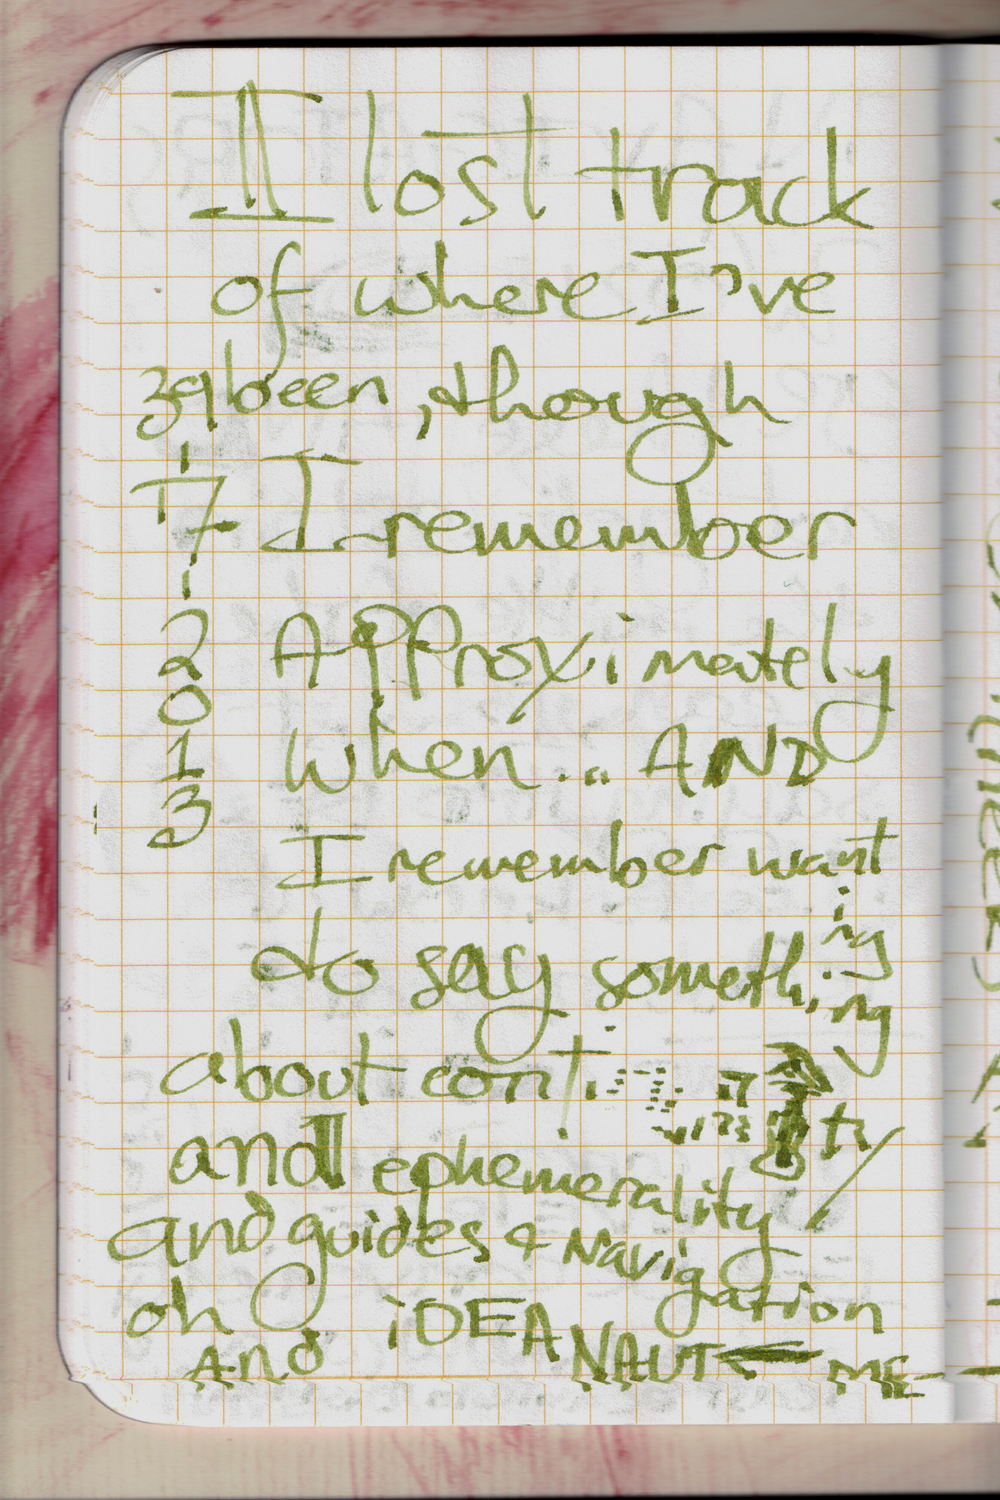 I lost track
of where I've
been, though
I remember
Approximately
when... AND
I remember wanting
to say something
about conti ty
and ephemerality
and guides & Navigation
oh
And iDEANAUT ← ME
29
7
2
0
1
3